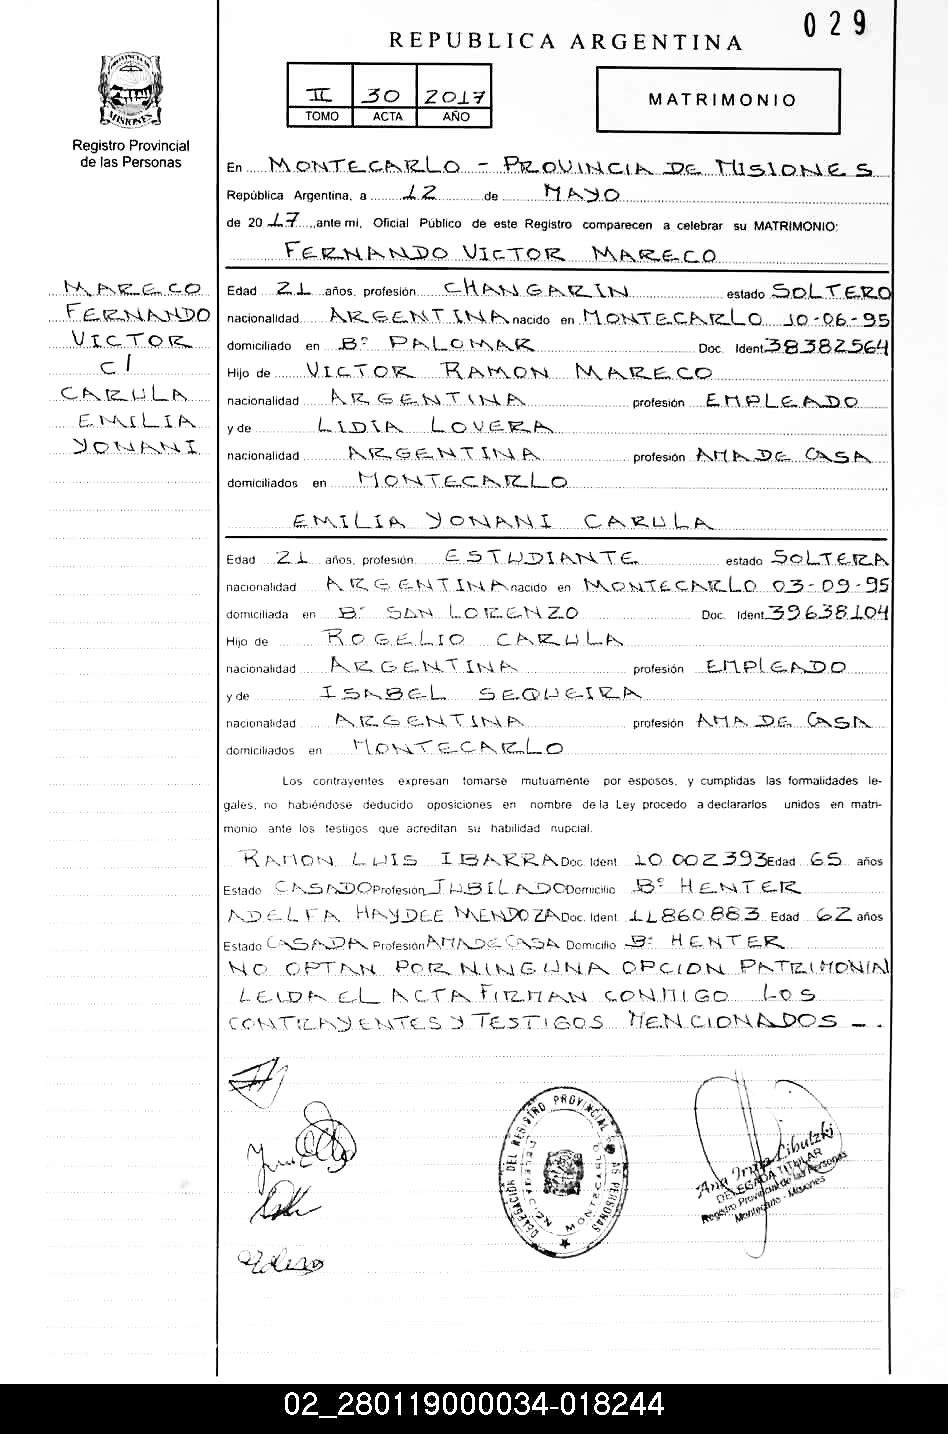 029
REPUBLICA ARGENTINA
II 30 2017
TOMO ACTA AÑO
MATRIMONIO
Registro Provincial
de las Personas
En MONTECARLO - PROVINCIA DE MISIONES
República Argentina, a 12 de MAYO
de 2017, ante mi, Oficial Público de este Registro comparecen a celebrar su MATRIMONIO:
FERNANDO VICTOR MARECO
MARECO
FERNANDO
VICTOR
C/
CARULA
EMILIA
YONANI
Edad 21 años, profesión CHANGARIN estado SOLTERO
nacionalidad ARGENTINA nacido en MONTECARLO 10-06-95
domiciliado en Bº PALOMAR Doc. Ident 38382564
Hijo de VICTOR RAMON MARECO
nacionalidad ARGENTINA profesión EMPLEADO
y de LIDIA LOVERA
nacionalidad ARGENTINA profesión AMA DE CASA
domiciliados en MONTECARLO
EMILIA YONANI CARULA
Edad 21 años, profesión ESTUDIANTE estado SOLTERA
nacionalidad ARGENTINA nacido en MONTECARLO 03-09-95
domiciliada en Bº SAN LORENZO Doc. Ident 39638104
Hijo de ROGELIO CARULA
nacionalidad ARGENTINA profesión EMPLEADO
y de ISABEL SEQUEIRA
nacionalidad ARGENTINA profesión AMA DE CASA
domiciliados en MONTECARLO
Los contrayentes expresan tomarse mutuamente por esposos, y cumplidas las formalidades le-
gales, no habiéndose deducido oposiciones en nombre de la Ley procedo a declararlos unidos en matri-
monio ante los testigos que acreditan su habilidad nupcial.
RAMON LUIS IBARRA Doc. Ident 10 002393 Edad 65 años
Estado CASADO Profesión JUBILADO Domicilio Bº HENTER
ADELFA HAYDEE MENDOZA Doc. Ident 11860883 Edad 62 años
Estado CASADA Profesión AMA DE CASA Domicilio Bº HENTER
NO OPTAN POR NINGUNA OPCION PATRIMONIAL
LEIDA EL ACTA FIRMAN CONMIGO LOS
CONTRAYENTES Y TESTIGOS MENCIONADOS - .
DELEGACIÓN DEL REGISTRO PROVINCIAL PERSONAS
MONTECARLO
Ana Libutzki
DELEGADA TITULAR
Registro Provincial de las Personas
Montecarlo - Misiones
02_280119000034-018244